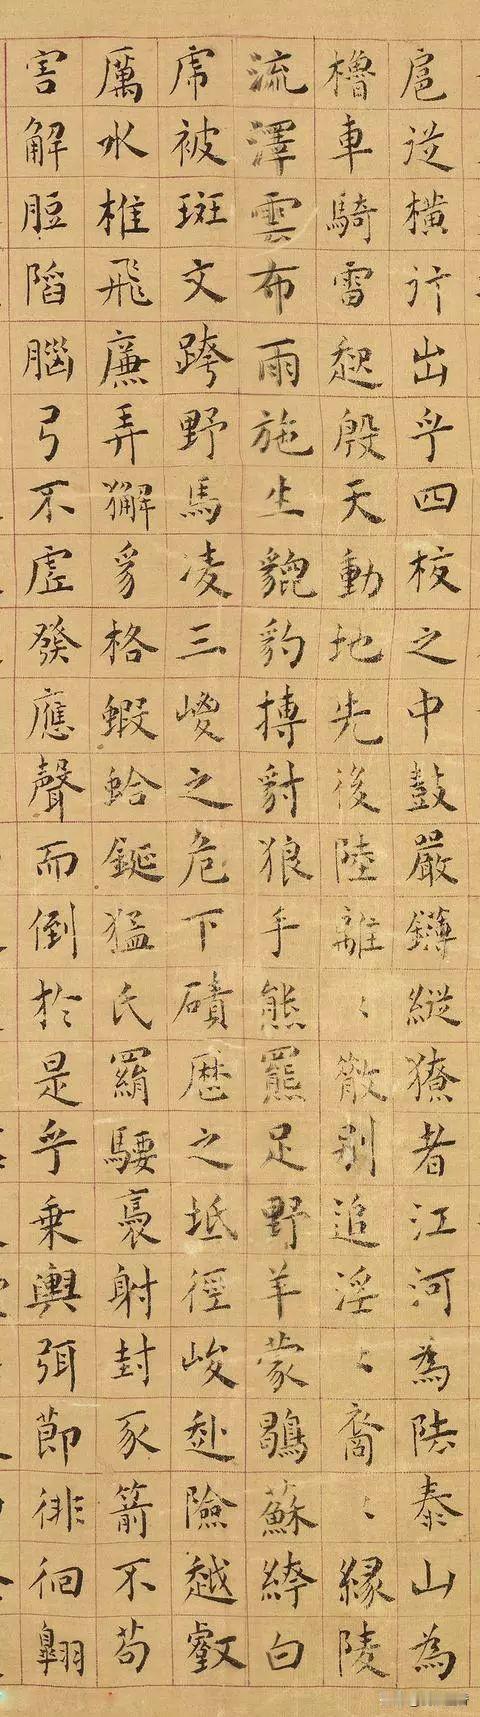 扈從橫行出乎四校之中鼓嚴鑮縱獠者江河為阹泰山為
櫓車騎雷起殷天動地先後陸離〻散別追淫〻裔〻緣陵
流澤雲布雨施生貔豹搏豺狼手熊羆足野羊蒙鶡蘇絝白
虎被斑文跨野馬凌三嵕之危下磧歷之坻徑峻赴險越壑
厲水椎飛廉弄獬豸格蝦蛤鋋猛氏羂騕褭射封豕箭不苟
害解脰陷腦弓不虛發應聲而倒於是乎乘輿弭節徘徊翺